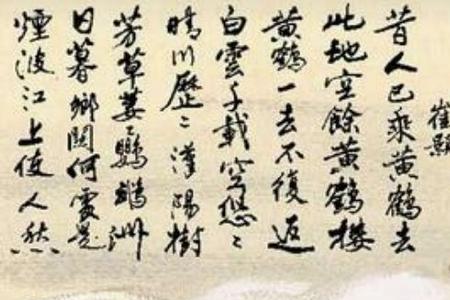 崔顥
昔人已乘黄鶴去
此地空餘黄鶴樓
黄鶴一去不復返
白雲千載空悠々
晴川歷々漢陽樹
芳草萋々鸚鵡洲
日暮鄉關何處是
煙波江上使人愁